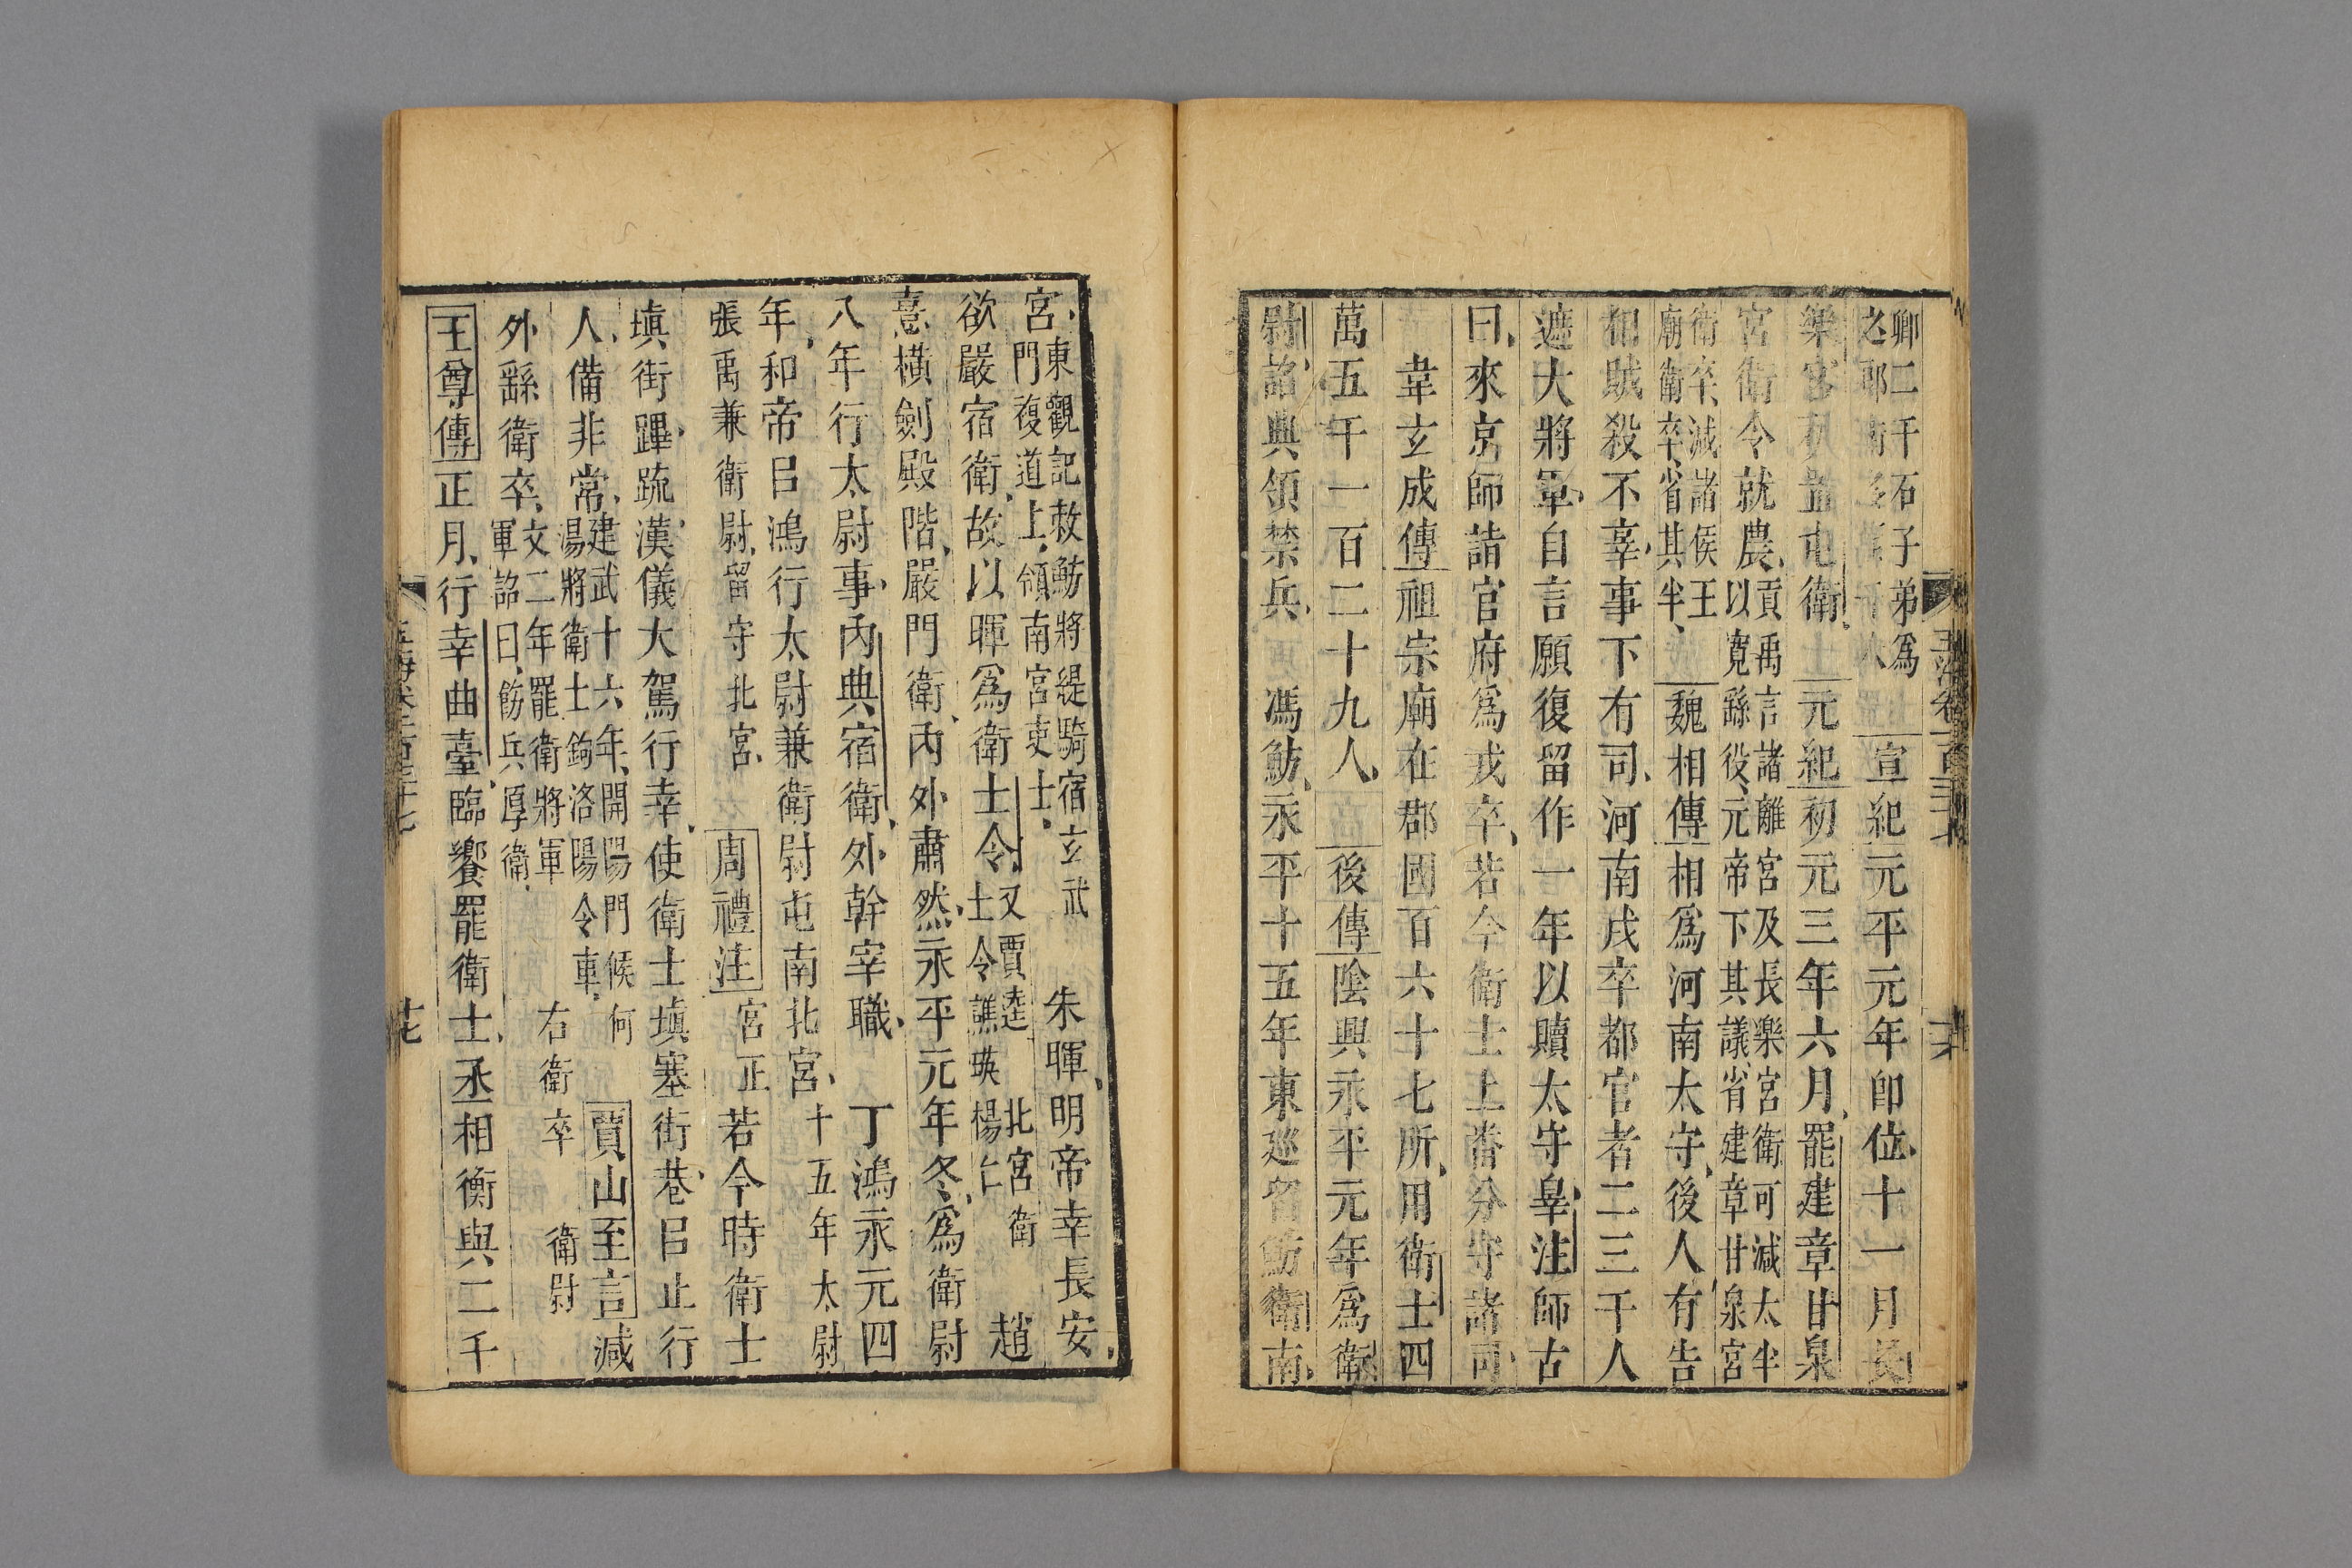 卿二千石子弟爲
之郎衛 宣紀元平元年卽位十一月長
樂宮初置屯衛 元紀初元三年六月罷建章甘泉
宮衛令就農貢禹言諸離宮及長樂宮衛可減太半
以寬繇役元帝下其議省建章甘泉宮
衛卒減諸侯王
廟衛卒省其半 魏相傳相爲河南太守後人有告
相賊殺不辜事下有司河南戍卒都官者二三千人
遮大將軍自言願復留作一年以贖太守皐注師古
曰來京師諸官府爲戎卒若今衛士上畨分守諸司
韋玄成傳祖宗廟在郡國百六十七所用衛士四
萬五千一百二十九人 後傳陰興永平元年爲衛
尉詔典領禁兵 馮魴永平十五年東巡留魴衛南
玉海卷一百三十七
宮東觀記敕魴將緹騎宿玄武
門複道上領南宮吏士 朱暉明帝幸長安
欲嚴宿衛故以暉爲衛士令又賈逵 北宮衛
士令譙瑛楊仁 趙
憙橫劍殿階嚴門衛內外肅然永平元年冬爲衛尉
八年行太尉事內典宿衛外幹宰職 丁鴻永元四
年和帝㠯鴻行太尉兼衛尉屯南北宮十五年太尉
張禹兼衛尉留守北宮 周禮注宮正若今時衛士
塡街蹕疏漢儀大駕行幸使衛士塡塞街巷㠯止行
人備非常建武十六年開陽門候何
湯將衛士鉤洛陽令車 賈山至言減
外繇衛卒文二年罷衛將軍
軍詔曰飭兵厚衛 右衛卒 衛尉
王尊傳正月行幸曲臺臨饗罷衛士丞相衡與二千
十七